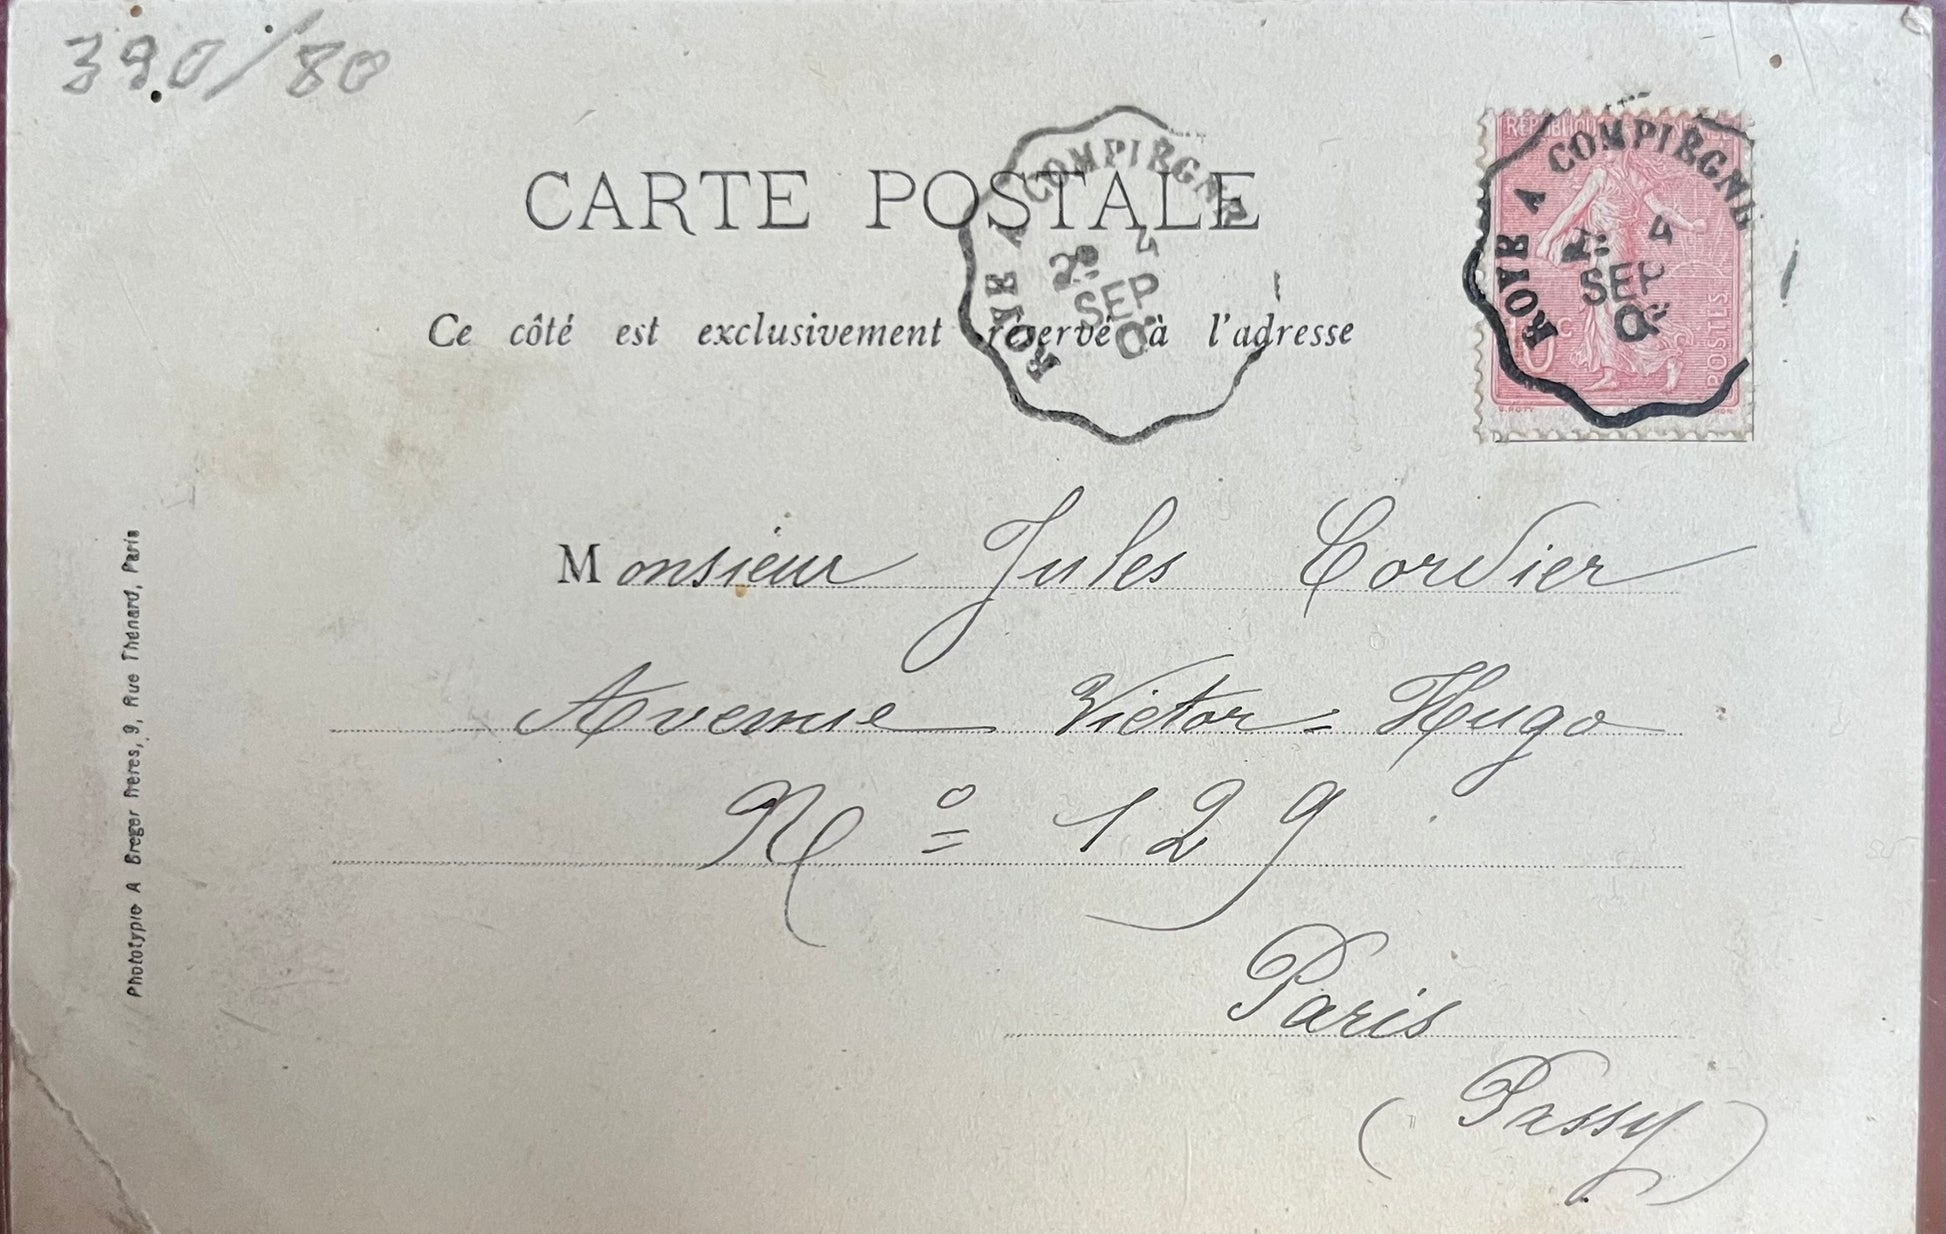 390/80
CARTE POSTALE
ROYE A COMPIEGNE
2e 4
SEP
0
RÉPUBLIQUE
ROYE A COMPIEGNE
2e 4
SEP
0
POSTES
O. ROTY
Ce côté est exclusivement réservé à l'adresse
Monsieur Jules Cordier
Avenue Victor=Hugo
No 129
Paris
(Passy)
Phototypie A Breger frères, 9, Rue Thénard, Paris